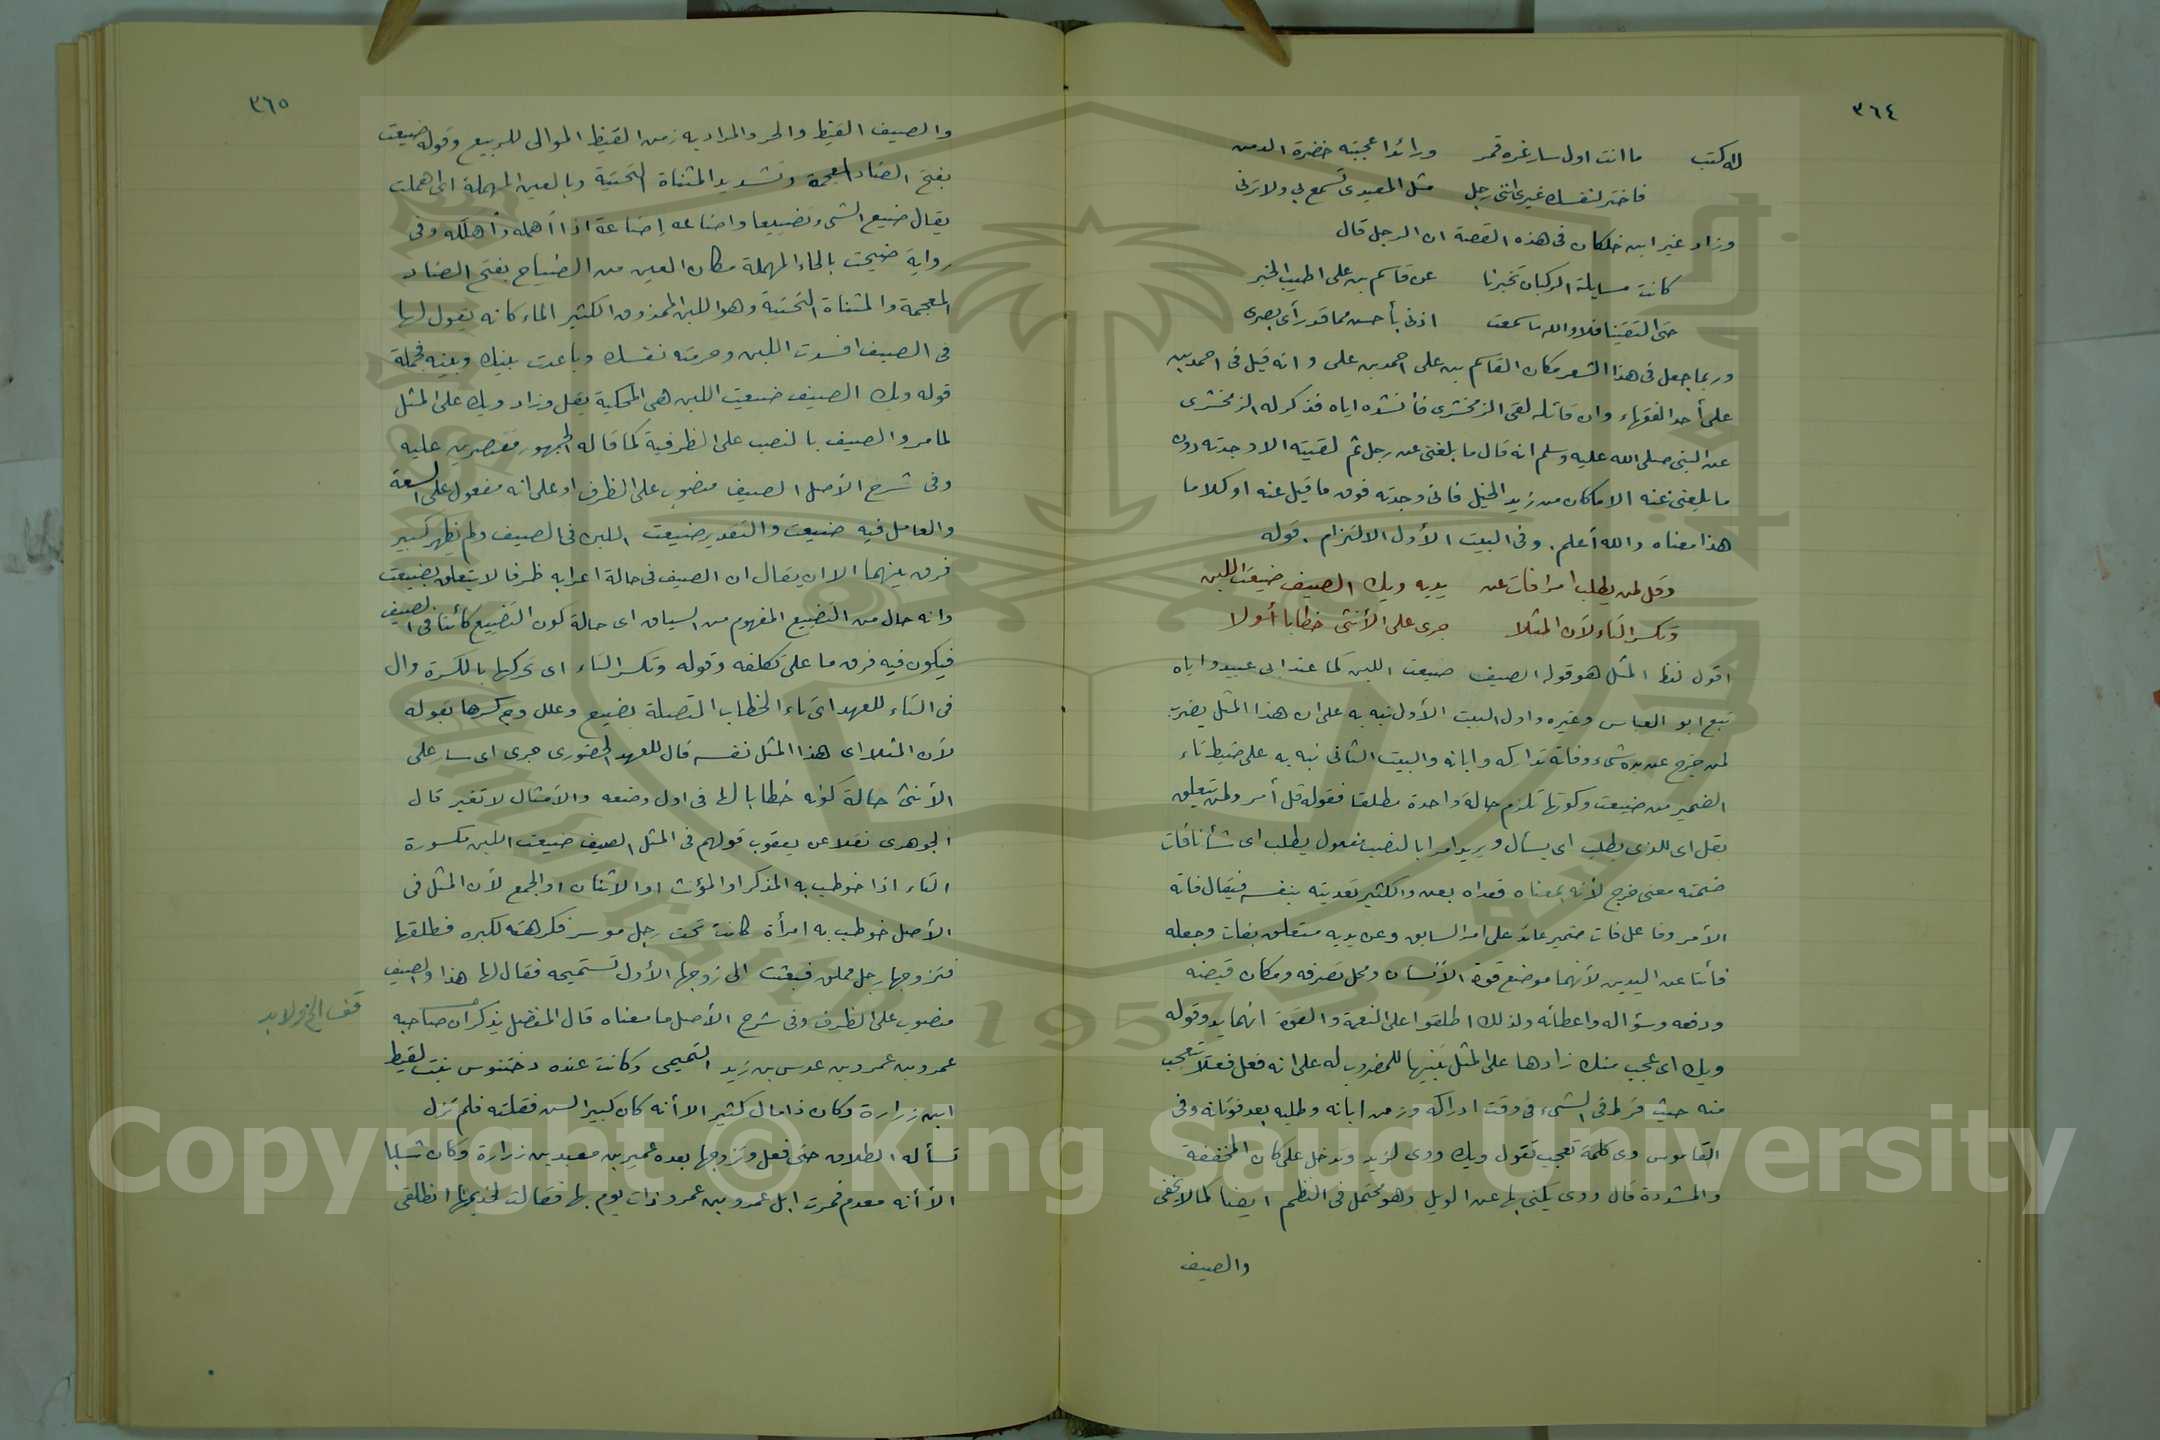 ٣٦٤
له كتب ما انت اول سار غره قمر ورائد اعجبته خضرة الدمن
فاختر لنفسك غيري انني رجل مثل المعيدى تسمع بي ولا ترني
وزاد غير ابن خلكان فى هذه القصة ان الرجل قال
كانت مسايلة الركبان تخبرنا عن قاسم بن على اطيب الخبر
حتى التقينا فلا والله ما سمعت اذنى بأحسن مما قد رأى بصرى
وربما جعل فى هذا الشعر مكان القاسم بن على احمد بن على وانه قيل فى احمد بن
على أحد الفقهاء وان قائله لقى الزمخشرى فأنشده اياه فذكر له الزمخشرى
عن النبى صلى الله عليه وسلم انه قال ما بلغنى عن رجل ثم لقيته الا وجدته دون
ما بلغنى عنه الا ما كان من زيد الخيل فانى وجدته فوق ما قيل عنه او كلاما
هذا معناه والله أعلم. وفى البيت الأول الالتزام. قوله
وقل لمن يطلب امرا فات عن يديه ويك الصيف ضيعت اللبن
وتكسر التاء لأن المثلا جرى على الأنثى خطابا أولا
اقول لفظ المثل هو قوله الصيف ضيعت اللبن كما عند ابى عبيد واياه
تبع ابو العباس وغيره واول البيت الأول نبه به على ان هذا المثل يضرب
لمن خرج عن يده شىء وفاته تداركه وابانه والبيت الثانى نبه به على ضبط تاء
الضمير من ضيعت وكونها تلزم حالة واحدة مطلقا فقوله قل أمر ولمن يتعلق
بقل اى للذى يطلب اى يسأل ويريد امرا بالنصب مفعول يطلب اى شأنا فات
ضمته معنى خرج لأنه بمعناه فعداه بعن والكثير تعديته بنفسه فيقال فاته
الأمر وفاعل فات ضمير عائد على امر السابق وعن يديه متعلق بفات وجعله
فائتا عن اليدين لأنهما موضع قوة الأنسان ومحل تصرفه ومكان قبضه
ودفعه وسؤاله واعطائه ولذلك اطلقوا على النعمة والقوة انهما يد وقوله
ويك اى عجب منك زادها على المثل تنبيها للمضروب له على انه فعل فعلا تعجب
منه حيث فرط فى الشىء فى وقت ادراكه وزمن ابانه وطلبه بعد فوتانه وفى
القاموس وى كلمة تعجب تقول ويك ووى لزيد وتدخل على كان المخففة
والمشددة قال ووى يكنى بها عن الويل وهو محتمل فى النظم ايضا كما لا يخفى
والصيف
٣٦٥
والصيف القيظ والحر والمراد به زمن القيظ الموالى للربيع وقوله ضيعت
بفتح الضاد المعجمة وتشديد المثناة التحتية وبالعين المهملة اى اهملت
يقال ضيع الشىء تضييعا واضاعه إضاعة اذا أهمله وأهلكه وفى
رواية ضيحت بالحاء المهملة مكان العين من الضياح بفتح الضاد
المعجمة والمثناة التحتية وهو اللبن الممذوق الكثير الماء كانه يقول لها
فى الصيف افسدت اللبن وحرمته نفسك وباعدت بينك وبينه فجملة
قوله ويك الصيف ضيعت اللبن هى المحكية بقل وزاد ويك على المثل
لما مر والصيف بالنصب على الظرفية كما قاله الجمهور مقتصرين عليه
وفى شرح الأصل الصيف منصوب على الظرف او على انه مفعول على السعة
والعامل فيه ضيعت والتقدير ضيعت اللبن فى الصيف ولم يظهر كبير
فرق بينهما الا ان يقال ان الصيف فى حالة اعرابه ظرفا لا يتعلق بضيعت
وانه حال من التضييع المفهوم من السياق اى حالة كون التضييع كائنا فى الصيف
فيكون فيه فرق ما على تكلفه وقوله وتكسر التاء اى تحركها بالكسرة وال
فى التاء للعهد اى تاء الخطاب المتصلة بضيع وعلل وجه كسرها بقوله
لأن المثلا اى هذا المثل نفسه فال للعهد الحضورى جرى اى سار على
الأنثى حالة كونه خطابا لها فى اول وضعه والأمثال لا تغير قال
الجوهرى نقلا عن يعقوب قولهم فى المثل الصيف ضيعت اللبن مكسورة
التاء اذا خوطب به المذكر او المؤنث او الاثنان او الجمع لأن المثل فى
الأصل خوطب به امرأة كانت تحت رجل موسر فكرهته لكبره فطلقها
فتزوجها رجل مملق فبعثت الى زوجها الأول تستميحه فقال لها هذا والصيف
منصوب على الظرف وفى شرح الأصل ما معناه قال المفضل يذكر ان صاحبه
عمرو بن عمرو بن عدس بن زيد التميمى وكانت عنده دختنوس بنت لقيط
ابن زرارة وكان ذا مال كثير الا أنه كان كبير السن فقلته فلم تزل
تسأله الطلاق حتى فعل وتزوجها بعده عمير بن معبد بن زرارة وكان شابا
الا أنه معدم فمرت ابل عمرو بن عمرو ذات يوم بها فقالت لخديمتها انطلقى
1957
Copyright © King Saud University